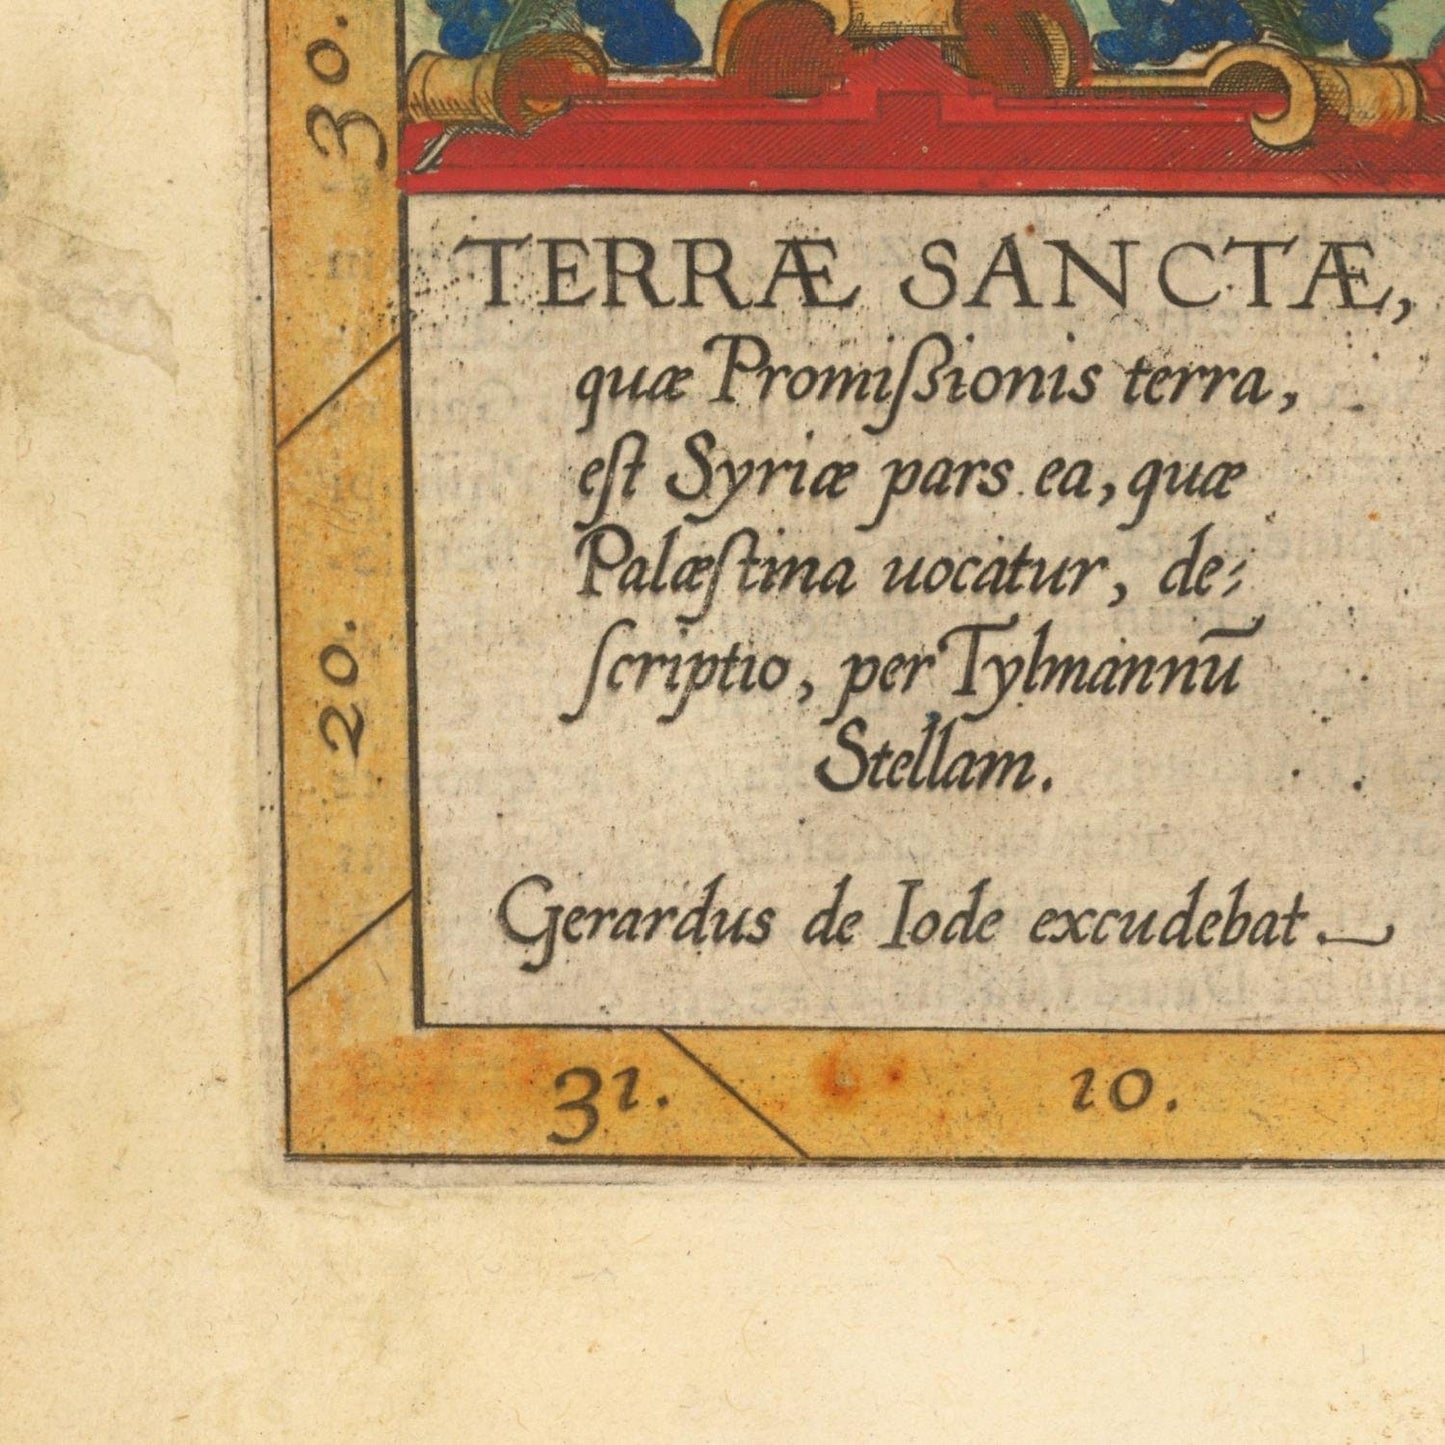 30.
TERRÆ SANCTÆ,
quæ Promißionis terra,
eſt Syriæ pars ea, quæ
Palæſtina uocatur, de⸗
ſcriptio, per Tylmannū
Stellam.
20.
Gerardus de Iode excudebat.
31.
10.